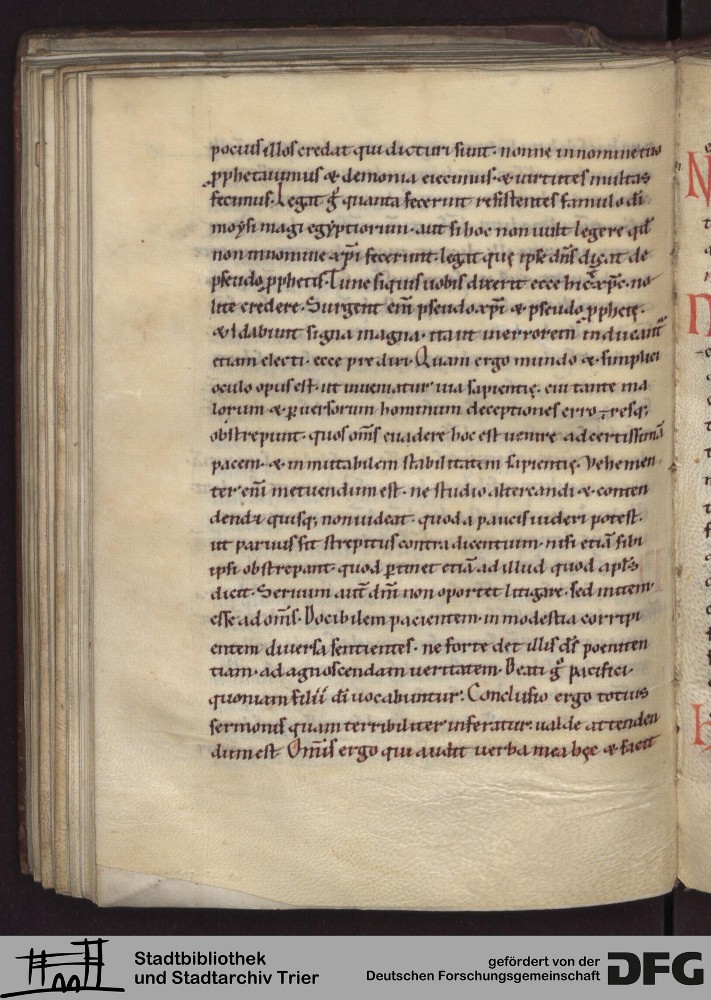 pociuſ illoſ credat qui dicturi ſunt· nonne in nomine tuo
ꝓphetauimus & demonia eiecimus· & uirtuteſ multas
fecimuſ· Legat g̊ quanta fecerunt reſiſtenteſ famulo dı̄
moẏſi magi egẏptiorum· aut ſi hoc non uult legere qđ
non in nomine xp̄i fecerunt· legat quę ipſe dn̄ſ dicat de
pſeudo ꝓphetiſ· Tunc ſi quiſ uobiſ dixerit ecce hic xp̄c· no
lite credere· Surgent eni̅ pſeudo xp̄i & pſeudo ꝓphetę·
& dabunt ſigna magna· ita ut in errorem inducant̃
etiam electi· ecce predixi· Quam ergo mundo & ſimplici
oculo opuſ eſt· ut inueniatur uia ſapientię· cui tante ma
lorum & ꝑuerſorum hominum deceptioneſ erroreſq;
obſtrepunt· quoſ om̄ſ euadere hoc eſt uenire ad certiſſimā
pacem· & inmutabilem ſtabilitatem ſapientię· Vehemen
ter eni̅ metuendum eſt· ne ſtudio altercandi & conten
dendi quiſq; non uideat· quod a pauciſ uideri poteſt·
ut paruuſ ſit ſtrepituſ contradicentium· niſi etiā ſibi
ipſi obſtrepant· quod ꝑtinet etiā ad illud quod apl̄s
dicit· Seruum aut̄ dn̄i non oportet litigare· ſed mitem
eſſe ad om̄ſ· Docibilem pacientem· in modeſtia corripi
entem diuerſa ſentienteſ· ne forte det illiſ dſ̄ poeniten
tiam· ad agnoſcendam ueritatem· Beati g̊ pacifici·
quoniam filii dı̄ uocabuntur· Concluſio ergo totius
ſermoniſ quam terribiliter inferatur· ualde attenden
dum eſt Omīſ ergo qui audit uerba mea hęc & facit
Stadtbibliothek
und Stadtarchiv Trier
gefördert von der
Deutschen Forschungsgemeinschaft
DFG